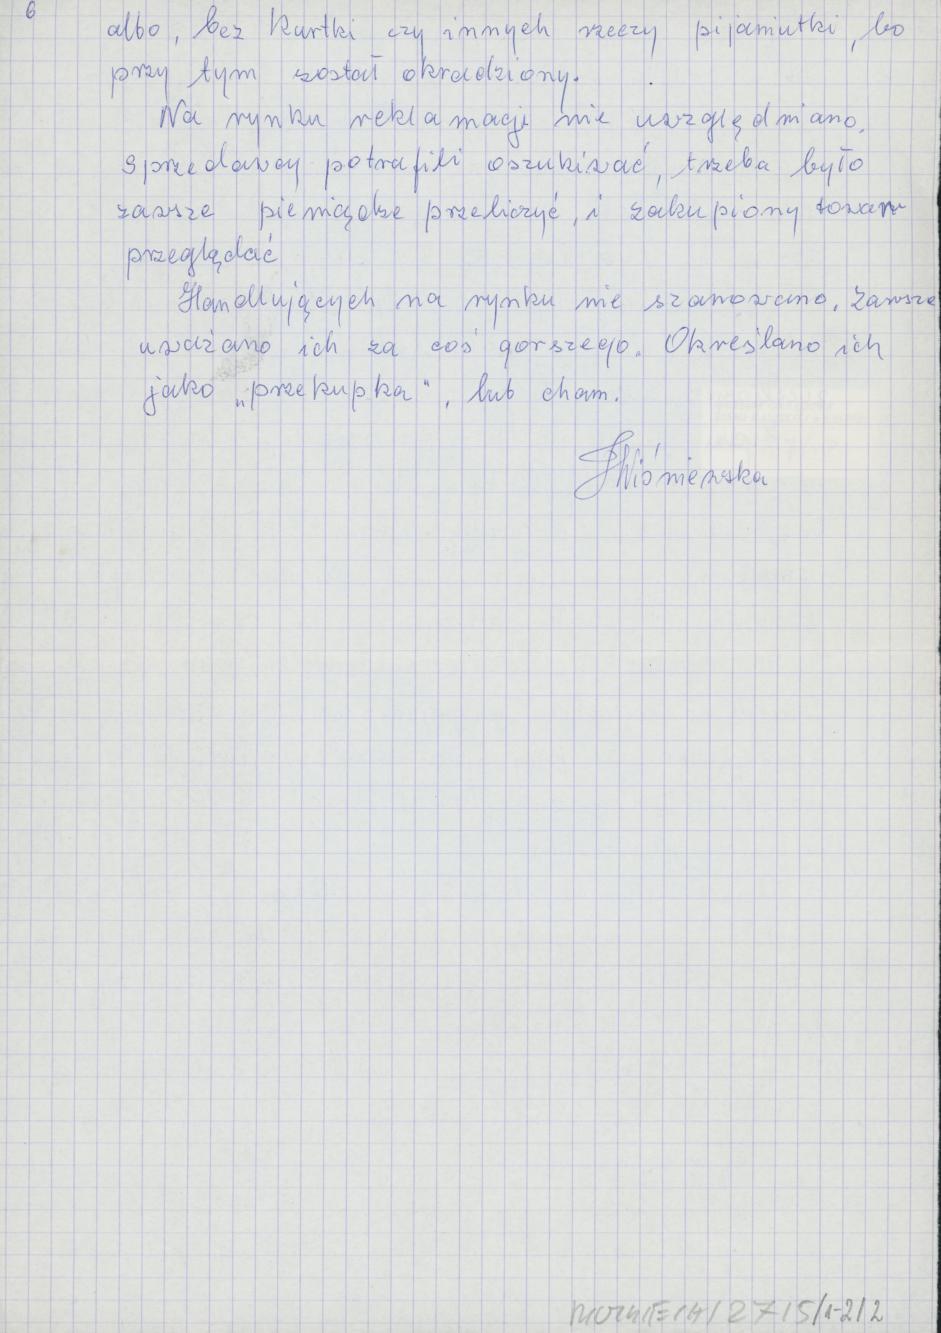 6
albo, bez kurtki czy innych rzeczy pijaniutki, bo
przy tym został okradziony.
Na rynku reklamacji nie uwzględniano,
sprzedawcy potrafili oszukiwać, trzeba było
zawsze pieniądze przeliczyć, i zakupiony towar
przeglądać
Handlujących na rynku nie szanowano, zawsze
uważano ich za coś gorszego. Określano ich
jako „przekupka", lub cham.
Wiśniewska
2715/1-2/2